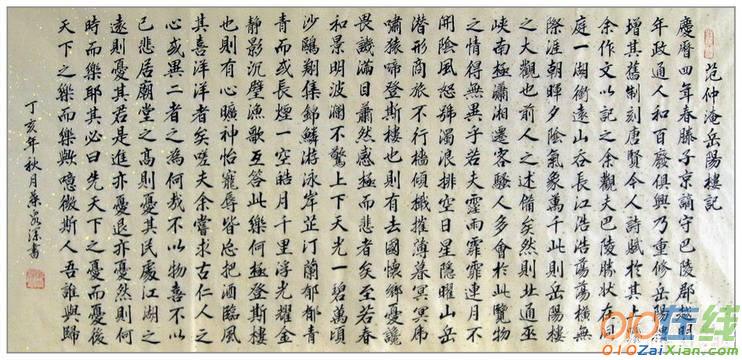 范仲淹岳陽樓記
慶曆四年春滕子京謫守巴陵郡越明
年政通人和百廢俱興乃重修岳陽樓
增其舊制刻唐賢今人詩賦於其上屬
余作文以記之余觀夫巴陵勝狀在洞
庭一湖銜遠山吞長江浩浩蕩蕩橫無
際涯朝暉夕陰氣象萬千此則岳陽樓
之大觀也前人之述備矣然則北通巫
峽南極瀟湘遷客騷人多會於此覽物
之情得無異乎若夫霪雨霏霏連月不
開陰風怒號濁浪排空日星隱曜山岳
潛形商旅不行檣傾楫摧薄暮冥冥虎
嘯猿啼登斯樓也則有去國懷鄉憂讒
畏譏滿目蕭然感極而悲者矣至若春
和景明波瀾不驚上下天光一碧萬頃
沙鷗翔集錦鱗游泳岸芷汀蘭郁郁青
青而或長煙一空皓月千里浮光耀金
靜影沉璧漁歌互答此樂何極登斯樓
也則有心曠神怡寵辱皆忘把酒臨風
其喜洋洋者矣嗟夫余嘗求古仁人之
心或異二者之為何哉不以物喜不以
己悲居廟堂之高則憂其民處江湖之
遠則憂其君是進亦憂退亦憂然則何
時而樂耶其必曰先天下之憂而憂後
天下之樂而樂歟噫微斯人吾誰與歸
丁亥年秋月書
在线
010ZaiXian.com